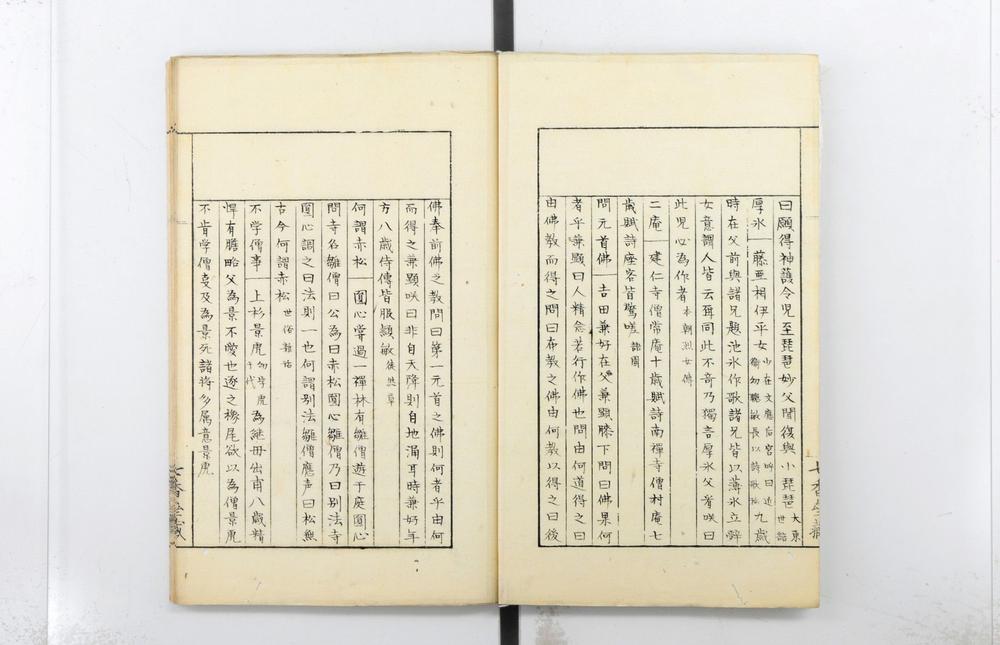 曰願得神護令児至琵琶妙父聞復與小琵琶大東世語
厚氷 藤亜相伊平女 九歳
時在父前與諸兄題池氷作歌諸兄皆以薄氷立辞
女意謂人皆云爾同此不奇乃獨言厚氷父看咲曰
此児必為作者本朝列女傳
二庵 建仁寺僧常庵十歳賦詩南禪寺僧村庵七
歳賦詩座客皆驚嗟
問元首佛 吉田兼好在父兼顕膝下問曰佛果何
者乎兼顕曰人精念若行作佛也問由何道得之曰
由佛教而得之問曰布教之佛由何教以得之曰後
佛奉前佛之教問曰第一元首之佛則何者乎由何
而得之兼顕咲曰非自天降則自地涌耳時兼好年
方八歳侍傳皆服頴敏徒然草
何謂赤松 圓心嘗過一禪林有雛僧遊于庭圓心
問寺名雛僧曰公為曰赤松圓心雛僧乃曰別法寺
圓心調之曰法則一也何謂別法雛僧應声曰松無
古今何謂赤松世俗雑話
不学僧事 上杉景虎 為継母出甫八歳精
悍有膽略父為景不愛也逐之橡尾欲以為僧景虎
不肯学僧事及為景死諸将多属意景虎